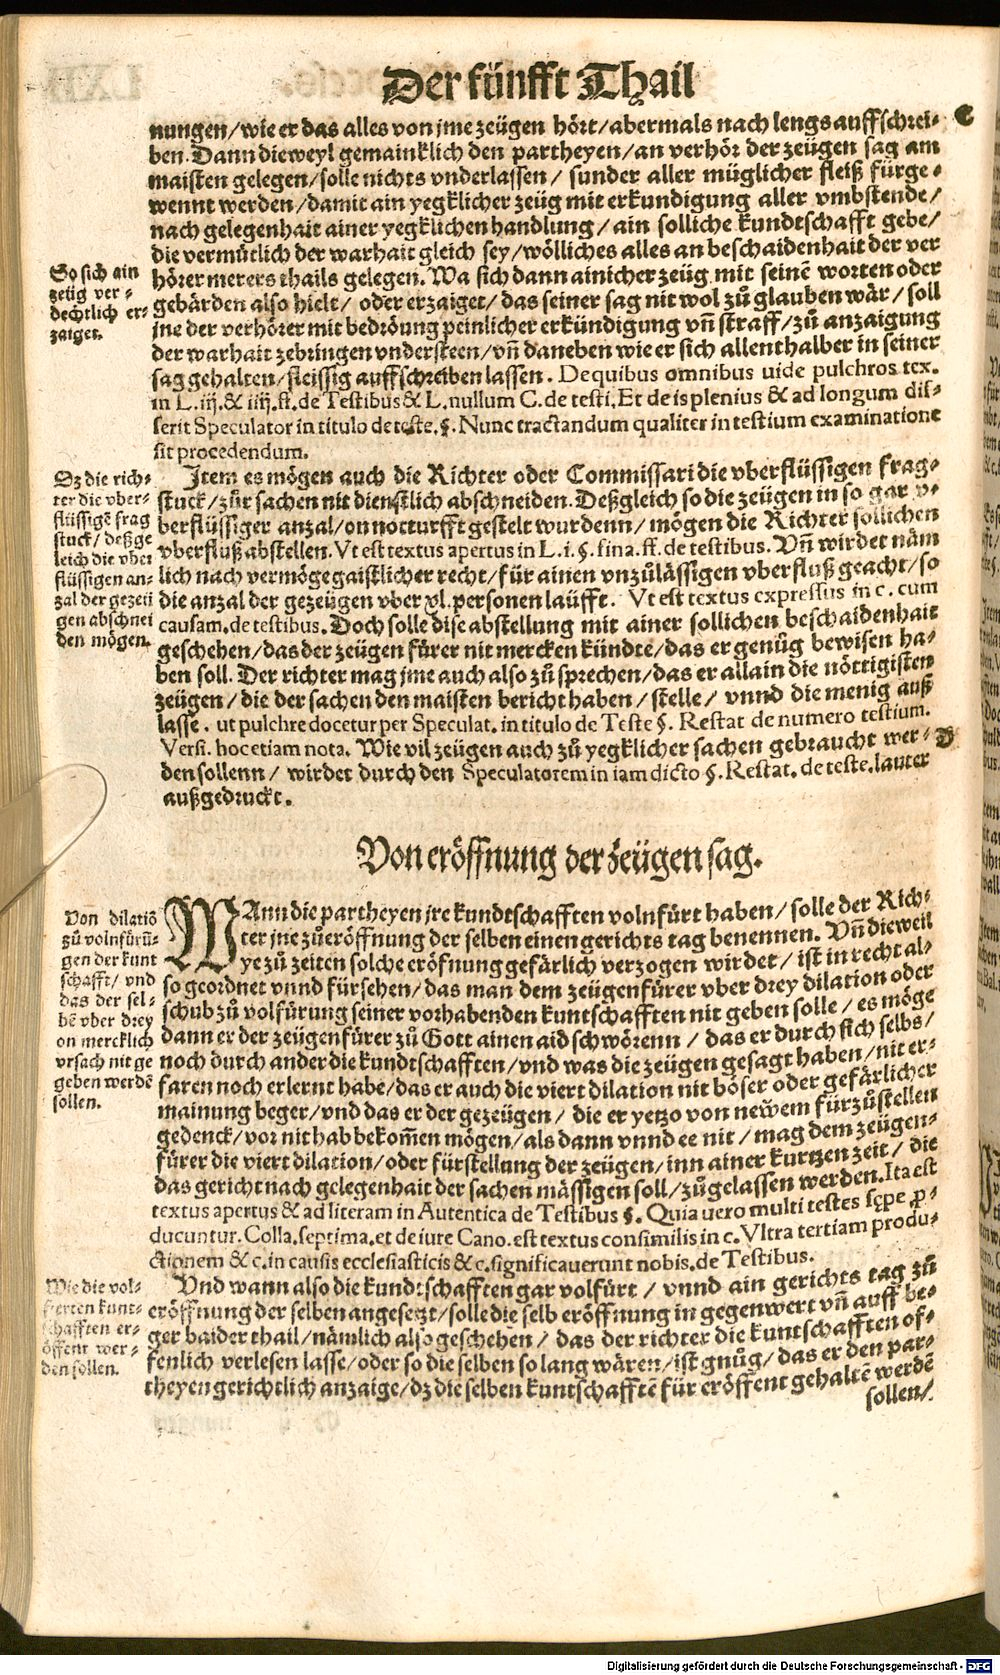 Der fünfft Thail
C
nungen/wie er das alles von jme zeügen hört/abermals nach lengs auffschrei-
ben. Dann dieweyl gemainklich den partheyen/an verhör der zeügen sag am
maisten gelegen/solle nichts vnderlassen/ sunder aller müglicher fleiß fürge-
wennt werden/damit ain yegklicher zeüg mit erkundigung aller vmbstende/
nach gelegenhait ainer yegklichen handlung/ain solliche kundtschafft gebe/
die vermütlich der warhait gleich sey/wölliches alles an beschaidenhait der ver
So sich ain
zeüg ver-
dechtlich er-
zaiget.
hörer merers thails gelegen. Wa sich dann ainicher zeüg mit seinē worten oder
gebärden also hielt/ oder erzaiget/das seiner sag nit wol zů glauben wär/soll
jne der verhörer mit bedröung peinlicher erkündigung vñ straff/zů anzaigung
der warhait zebringen vndersteen/vñ daneben wie er sich allenthalber in seiner
sag gehalten/fleissig auffschreiben lassen. De quibus omnibus uide pulchros tex.
in L. iij. & iiij. ff. de Testibus & L. nullum C. de testi. Et de is plenius & ad longum dis-
serit Speculator in titulo de teste. §. Nunc tractandum qualiter in testium examinatione
sit procedendum.
Dz die rich-
ter die vber-
flüssigē frag
stuck/deßge
leich die vber
flüssigen an-
zal der gezeü
gen abschnei
den mögen.
Jtem es mögen auch die Richter oder Commissari die vberflüssigen frag-
stuck/zůr sachen nit dienstlich abschneiden. Deßgleich so die zeügen in so gar v-
berflüssiger anzal/on notturfft gestelt wurdenn/mögen die Richter sollichen
vberfluß abstellen. Vt est textus apertus in L. i. §. fina. ff. de testibus. Vñ wirdet näm
lich nach vermöge gaistlicher recht/für ainen vnzůlässigen vberfluß geacht/so
die anzal der gezeügen vber xl. personen laüfft. Vt est textus expressus in c. cum
causam. de testibus. Doch solle dise abstellung mit ainer sollichen beschaidenhait
geschehen/das der zeügen fürer nit mercken kündte/das er genůg bewisen ha-
ben soll. Der richter mag jme auch also zů sprechen/das er allain die nöttigisten
zeügen/die der sachen den maisten bericht haben/stelle/ vnnd die menig auß
lasse. ut pulchre docetur per Speculat. in titulo de Teste §. Restat de numero testium.
Versi. hoc etiam nota. Wie vil zeügen auch zů yegklicher sachen gebraucht wer-
D
den sollenn/ wirdet durch den Speculatorem in iam dicto §. Restat. de teste. lauter
außgedruckt.
Von eröffnung der zeügen sag.
Von dilatiō
zů volnfürū-
gen der kunt
schafft/vnd
das der sel-
bē vber drey
on mercklich
vrsach nit ge
geben werdē
sollen.
WAnn die partheyen jre kundtschafften volnfürt haben/solle der Rich-
ter jne zů eröffnung der selben einen gerichts tag benennen. Vñ dieweil
ye zů zeiten solche eröfnung gefärlich verzogen wirdet/ist in recht al-
so geordnet vnnd fürsehen/das man dem zeügenfürer vber drey dilation oder
schub zů volfürung seiner vorhabenden kuntschafften nit geben solle/es möge
dann er der zeügenfürer zů Gott ainen aid schwörenn/ das er durch sich selbs/
noch durch ander die kundtschafften/vnd was die zeügen gesagt haben/nit er-
faren noch erlernt habe/das er auch die viert dilation nit böser oder gefärlicher
mainung beger/vnd das er der gezeügen/ die er yetzo von newem fürzůstellen
gedenck/vor nit hab bekom̄en mögen/als dann vnnd ee nit/mag dem zeügen-
fürer die viert dilation/oder fürstellung der zeügen/inn ainer kurtzen zeit/ die
das gericht nach gelegenhait der sachen mässigen soll/zůgelassen werden. Ita est
textus apertus & ad literam in Autentica de Testibus §. Quia uero multi testes sępe p-
ducuntur. Colla. septima. et de iure Cano. est textus consimilis in c. Vltra tertiam produ-
ctionem & c. in causis ecclesiasticis & c. significauerunt nobis. de Testibus.
Wie die vol-
fierten kunt-
schafften er-
öffent wer-
den sollen.
Vnd wann also die kundtschafften gar volfürt/ vnnd ain gerichts tag zů
eröffnung der selben angesetzt/solle die selb eröffnung in gegenwert vñ auff be-
ger baider thail/nämlich also geschehen/ das der richter die kuntschafften of-
fenlich verlesen lasse/oder so die selben so lang wären/ist gnůg/das er den par-
theyen gerichtlich anzaige/dz die selben kuntschafftē für eröffent gehaltē werdē
sollen/
Digitalisierung gefördert durch die Deutsche Forschungsgemeinschaft - DFG